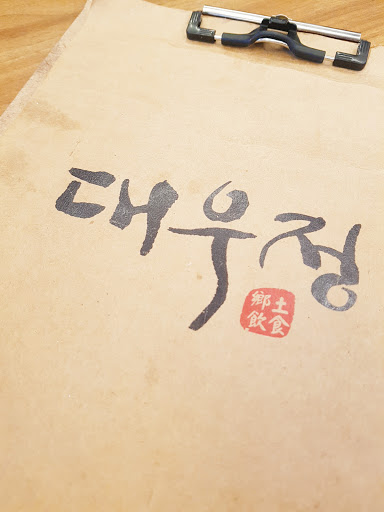 대우정
鄕土
飮食